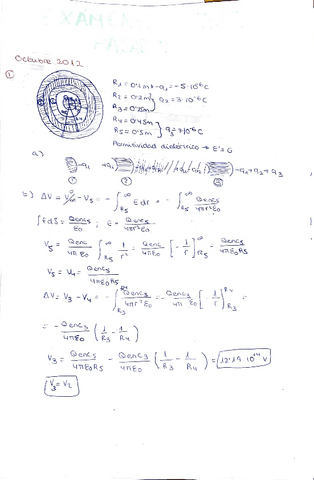 Octubre 2012
①
R1 = 0.1m → q1 = -5·10⁻⁶C
R2 = 0.2m } q2 = 3·10⁻⁶C
R3 = 0.25m
R4 = 0.45m } q3 = 7·10⁻⁶C
R5 = 0.5m
Permitividad dieléctrica →
a)
-q1 +q1 -q1+q2+q3
① ② ③
b) ΔV = V∞ - V5 = -∫_{R5}^{∞} E dr = -∫_{R5}^{∞} Qenc5/4πr²ε0
∫E dS = Qenc5/ε0 ; E = Qenc5/4πr²ε0
V5 = Qenc5/4πε0 ∫_{R5}^{∞} 1/r² = Qenc5/4πε0 [-1/r]_{R5}^{∞} = Qenc5/4πε0R5
V5 = V4 = Qenc5/4πε0R5
ΔV = V3 - V4 = -∫_{R3}^{R4} Qenc3/4πr²ε0 = -Qenc3/4πε0 [-1/r]_{R3}^{R4} =
= -Qenc3/4πε0 (1/R3 - 1/R4)
V3 = Qenc5/4πε0R5 - Qenc3/4πε0 (1/R3 - 1/R4) =
V3 = V2